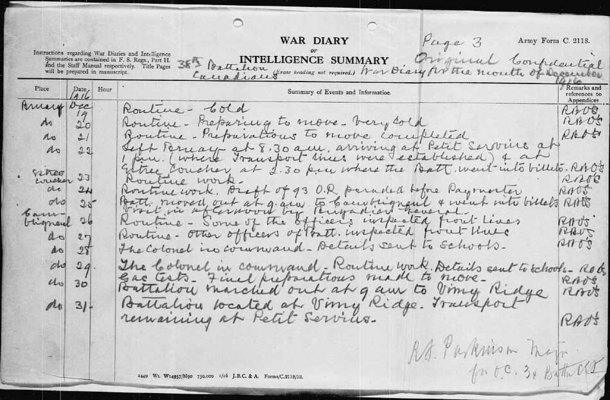 WAR DIARY
or
INTELLIGENCE SUMMARY
Page 3
Army Form C. 2118.
Instructions regarding War Diaries and Intelligence
Summaries are contained in F. S. Regs., Part II.
and the Staff Manual respectively. Title Pages
will be prepared in manuscript.
38th Battalion
Canadians
(Erase heading not required.)
Original Confidential
War Diary for the month of December
1916
Place Date Hour Summary of Events and Information Remarks and
references to
Appendices
1916
Pernay Dec
19 Routine - Cold
do 20 Routine - Preparing to move - Very cold
do 21 Routine - Preparations to move completed
do 22 Left Pernay at 8.30 a.m. arriving at Petit Servins at
1 p.m. (where Transport lines were established) & at
Estree Cauchee at 2.30 p.m where the Batt. went into billets.
23 Routine work.
do 24 Routine work. Draft of 93 O.R. paraded before Paymaster
do 25 Batt. moved out at 9 am to Cambligneul & went into billets
in afternoon by General.
Cambligneul 26 Routine - Some of the Officers inspected front lines
do 27 Routine - Other officers of Batt. inspected front lines
do 28 The Colonel in command - Details sent to Schools.
do 29. The Colonel in command - Routine work. Details sent to Schools -
do 30 Gas tests. Final preparations made to move -
Battalion marched out at 9 am to Vimy Ridge
do 31 - Battalion located at Vimy Ridge. Transport
remaining at Petit Servins.
R.F. Parkinson Major
for O.C. 38 Battn
Forms/C.2118/12.